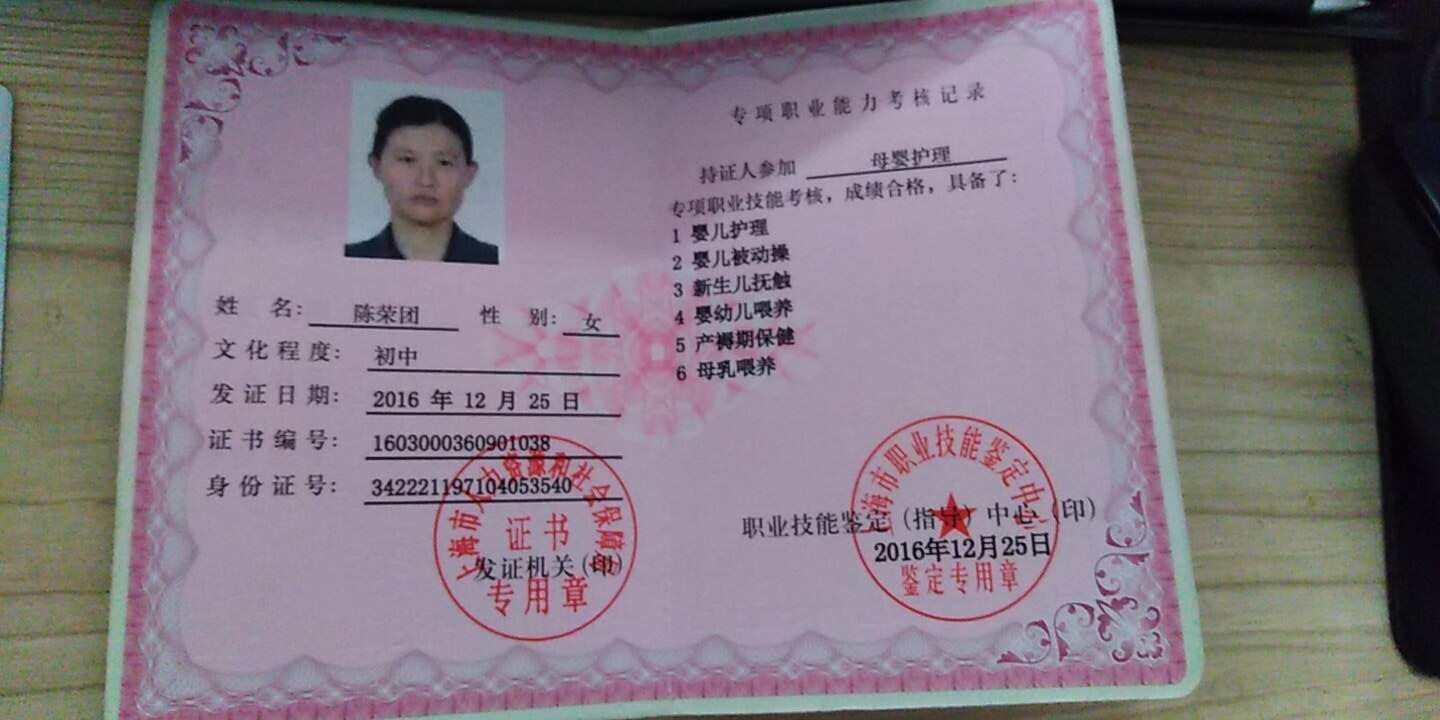 姓 名: 陈荣团 性 别: 女
文化程度: 初中
发证日期: 2016 年 12 月 25 日
证书编号: 1603000360901038
身份证号: 342221197104053540
上海市人力资源和社会保障局
证书
发证机关(印)
专用章
专项职业能力考核记录
持证人参加 母婴护理
专项职业技能考核,成绩合格,具备了:
1 婴儿护理
2 婴儿被动操
3 新生儿抚触
4 婴幼儿喂养
5 产褥期保健
6 母乳喂养
上海市职业技能鉴定中心
职业技能鉴定(指导)中心(印)
2016年12月25日
鉴定专用章